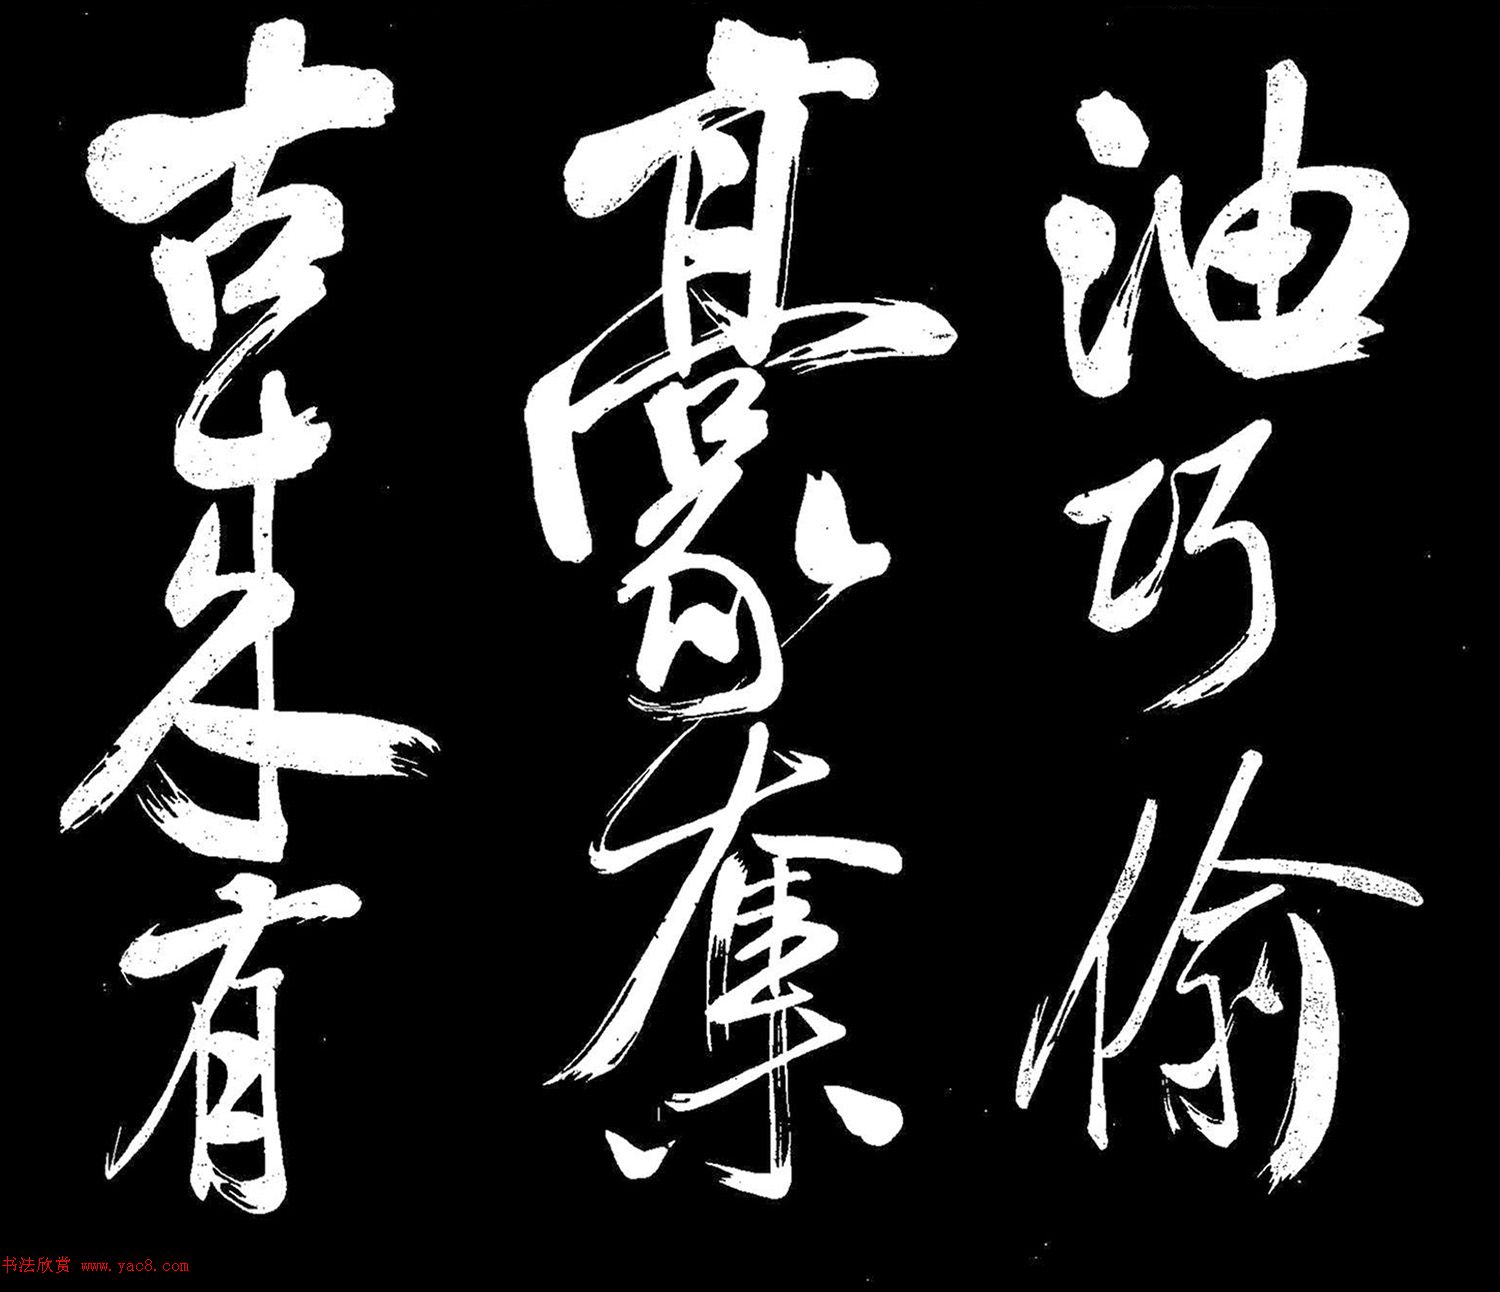 油巧偷
豪奪
古来有
书法欣赏 www.yac8.com